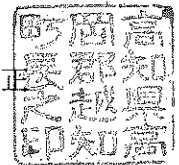 高知県高
岡郡越知
町長之印